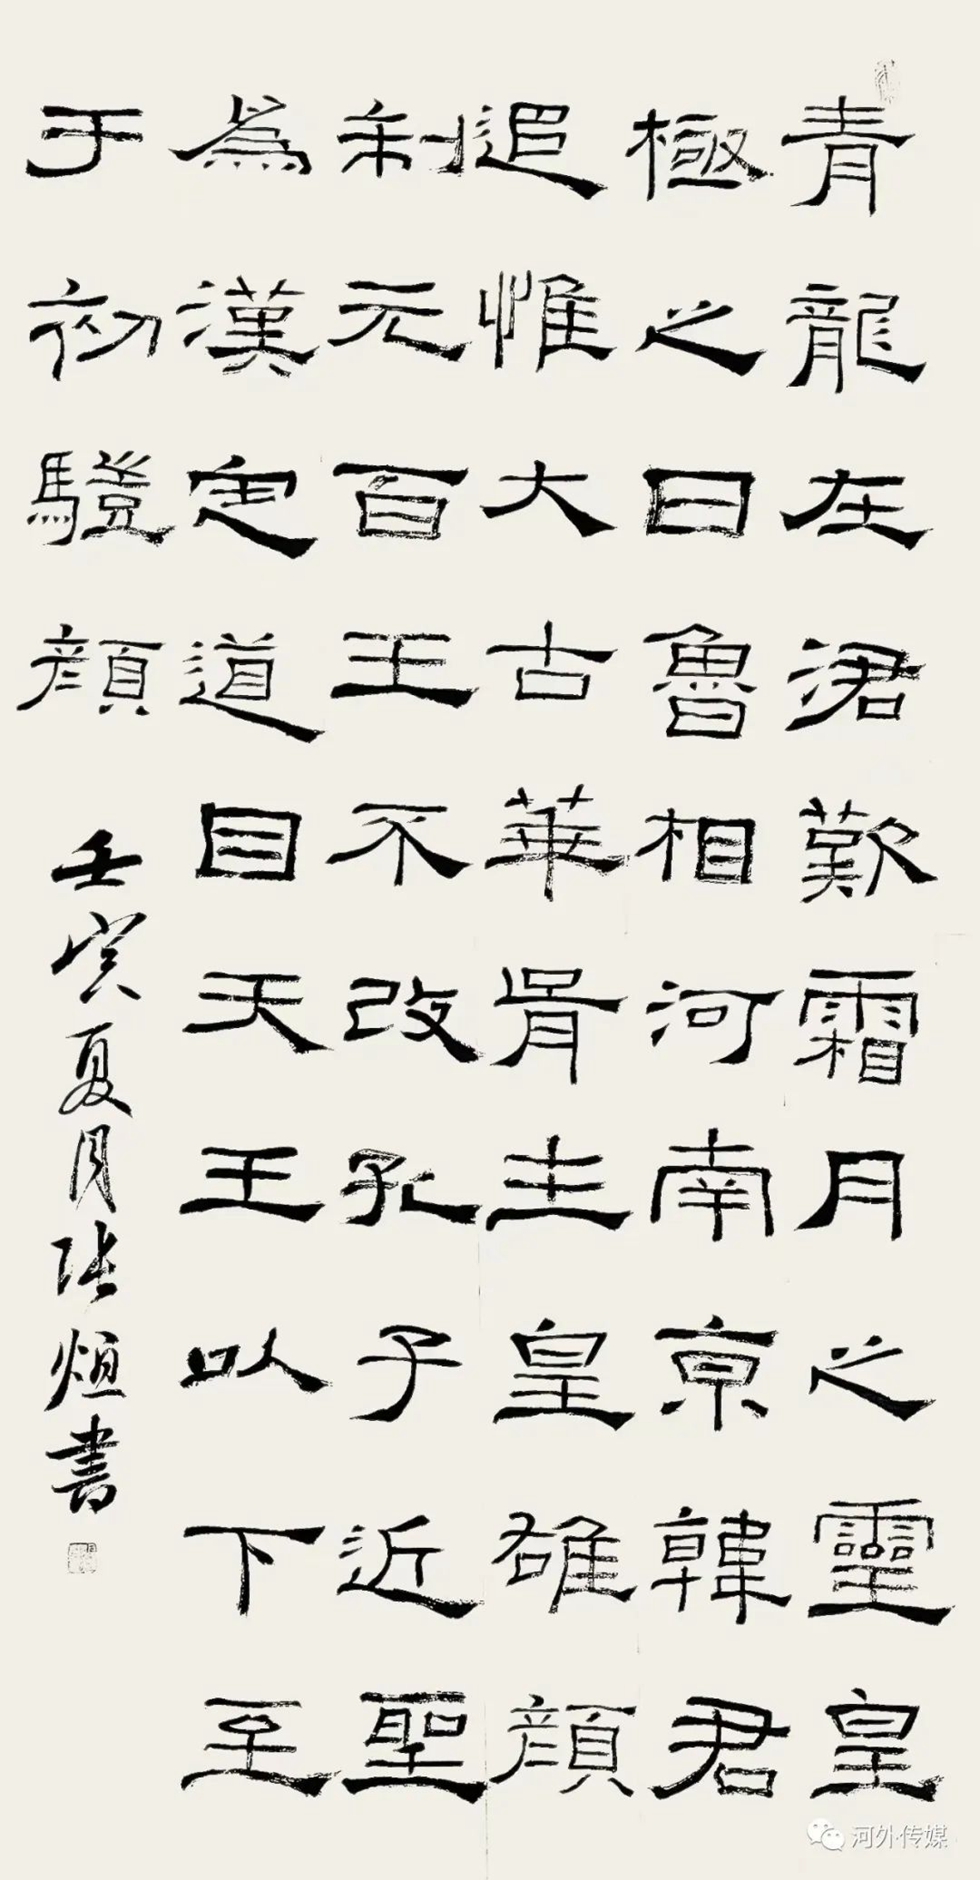 青龍在涒歎霜月之靈皇
極之日魯相河南京韓君
追惟大古華胥生皇雄顏
制元百王不改孔子近聖
為漢定道自天王以下至
于初驥顏
壬寅夏月張烜書
河外传媒